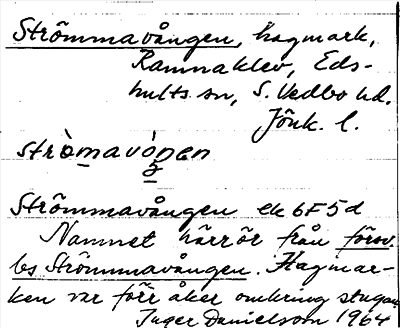 Strömmavången, hagmark,
Ramnaklev, Eds-
hults sn, S. Vedbo hd.
Jönk. l.
stròmavóŋen
Strömmavången ek 6F5d
Namnet härrör från försv.
lht Strömmavången. Hagmar-
ken var förr åker omkring stugan.
Inger Danielsson 1964